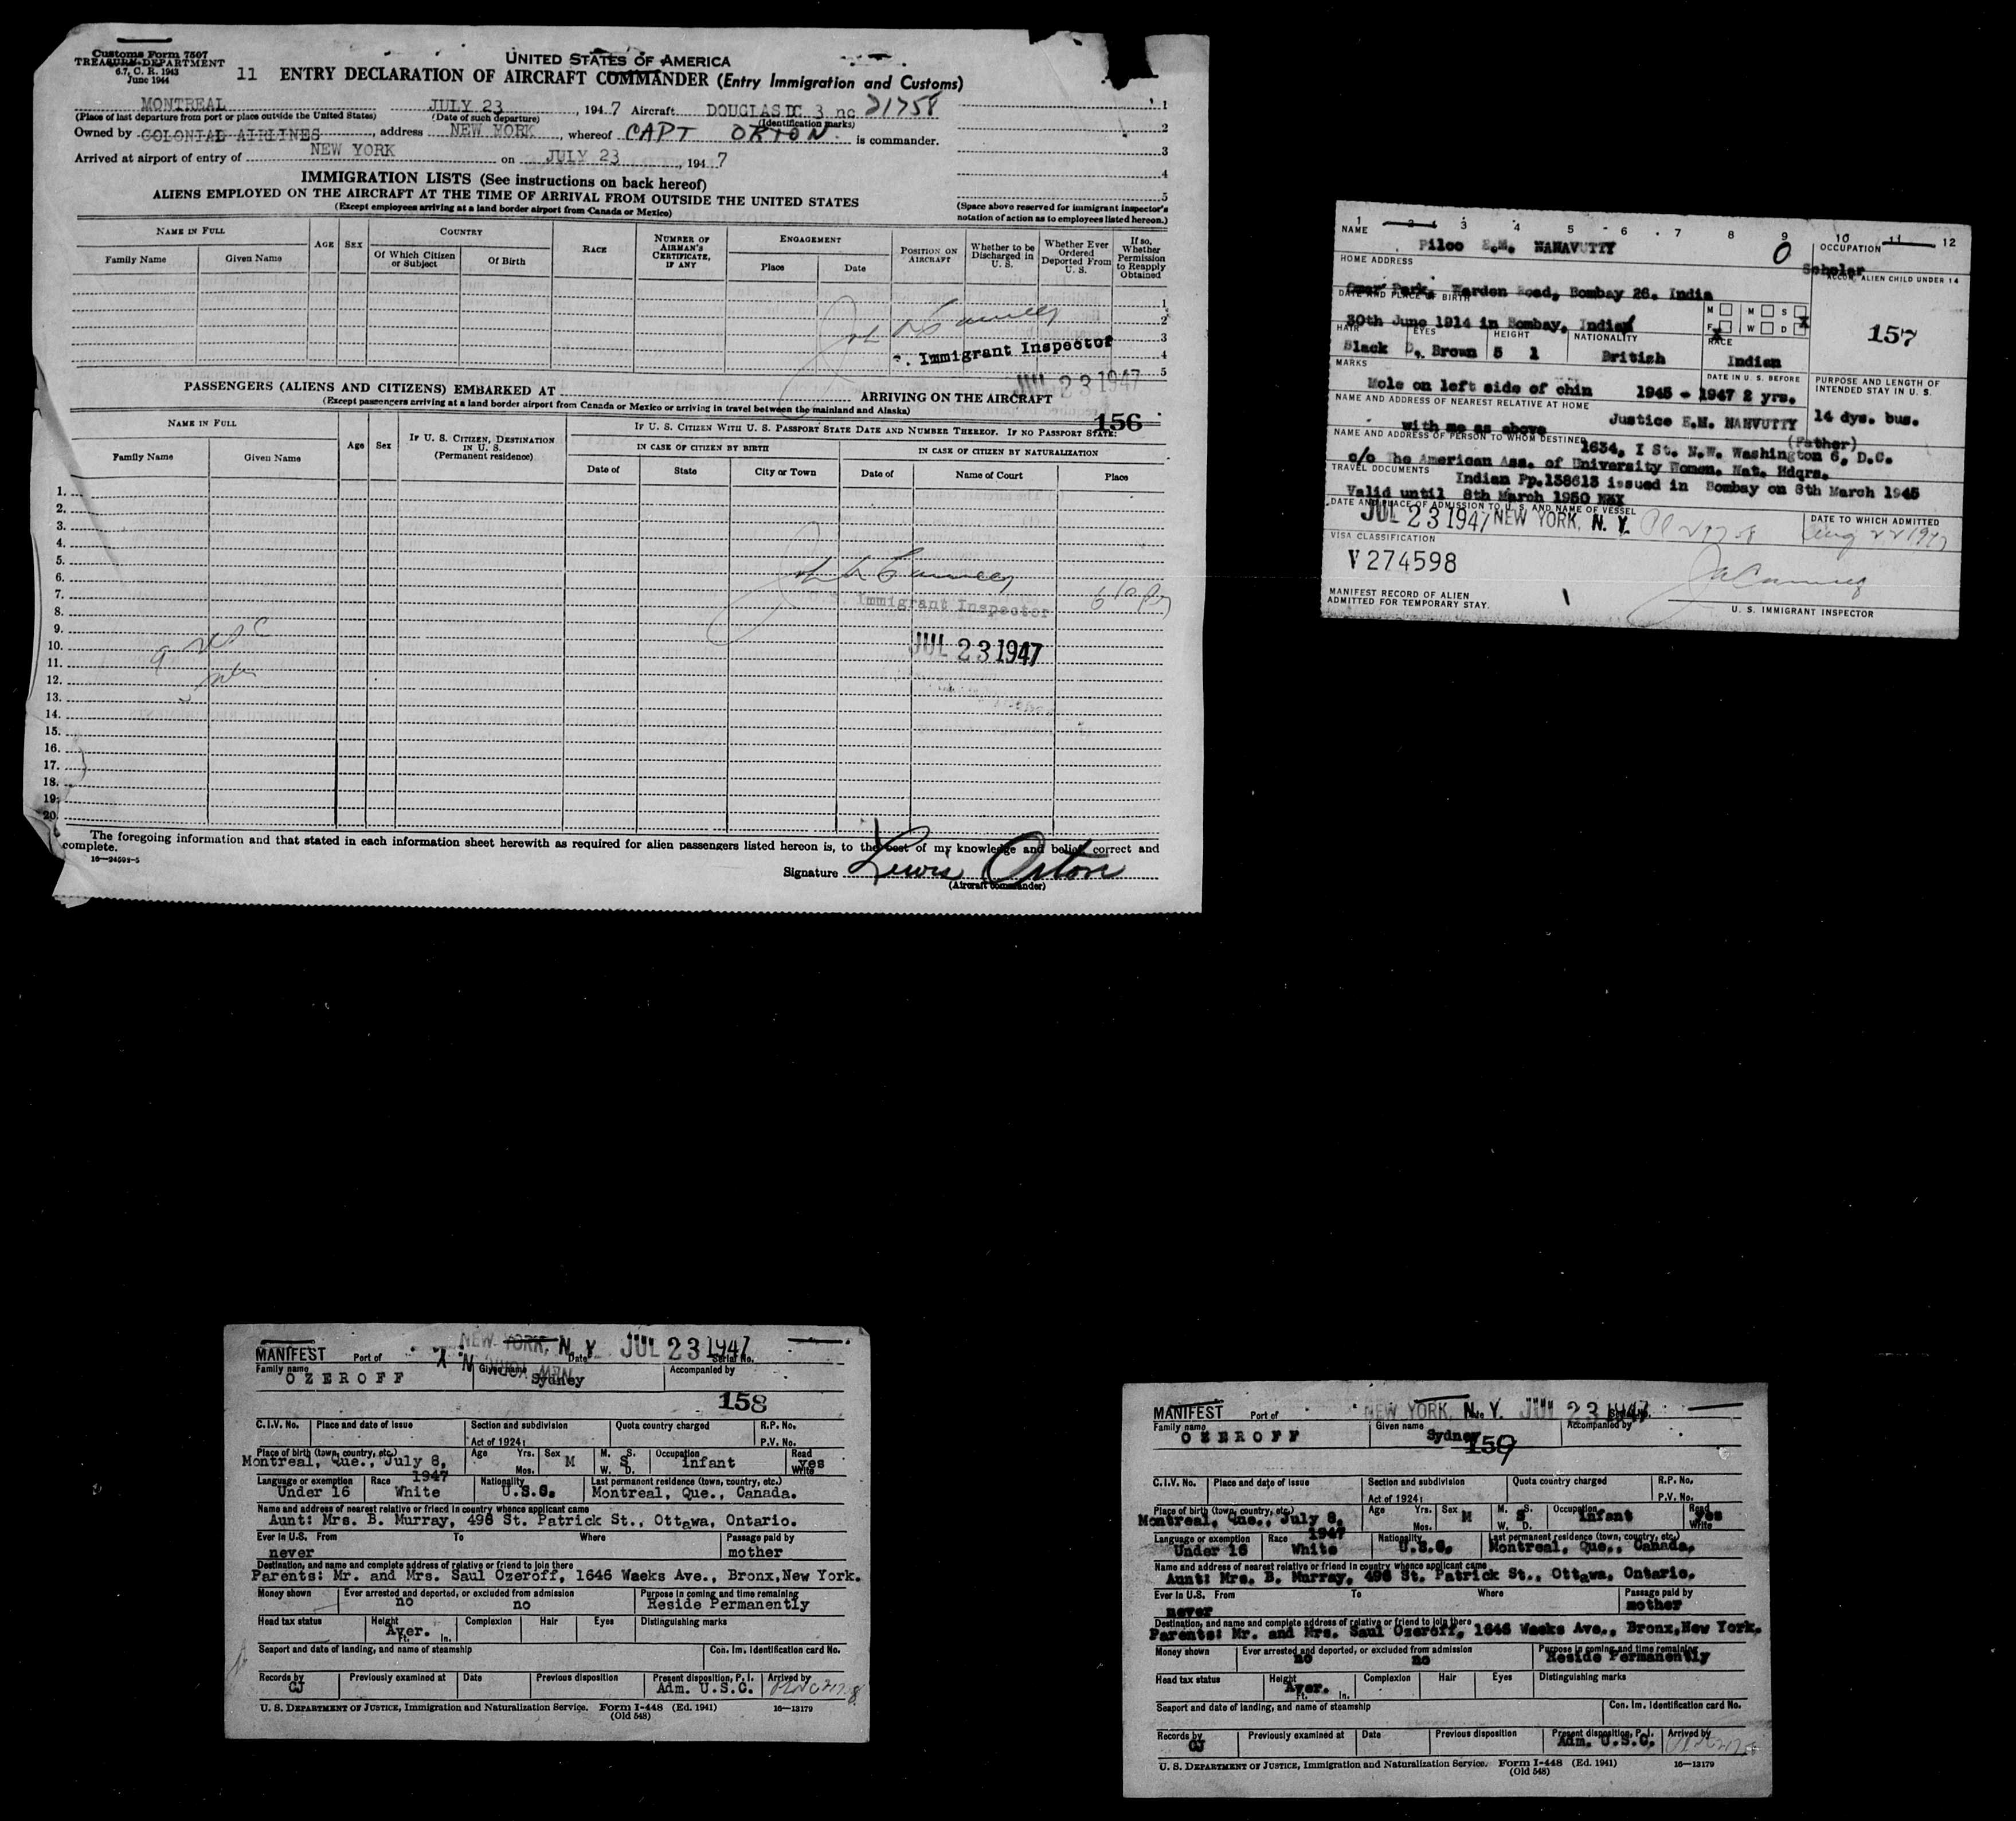 Customs Form 7507
TREASURY DEPARTMENT
6.7, C. R. 1943
June 1944
UNITED STATES OF AMERICA
11 ENTRY DECLARATION OF AIRCRAFT COMMANDER (Entry Immigration and Customs)
MONTREAL JULY 23, 1947 Aircraft DOUGLAS DC 3 nc 21758
(Place of last departure from port or place outside the United States) (Date of such departure) (Identification marks)
Owned by COLONIAL AIRLINES, address NEW YORK, whereof CAPT ORTON is commander.
Arrived at airport of entry of NEW YORK on JULY 23, 1947
1
2
3
4
5
IMMIGRATION LISTS (See instructions on back hereof)
ALIENS EMPLOYED ON THE AIRCRAFT AT THE TIME OF ARRIVAL FROM OUTSIDE THE UNITED STATES
(Except employees arriving at a land border airport from Canada or Mexico)
(Space above reserved for immigrant inspector's
notation of action as to employees listed hereon.)
NAME IN FULL
Family Name Given Name
AGE SEX
COUNTRY
Of Which Citizen or Subject Of Birth
RACE
NUMBER OF AIRMAN'S CERTIFICATE, IF ANY
ENGAGEMENT
Place Date
POSITION ON AIRCRAFT
Whether to be Discharged in U. S.
Whether Ever Ordered Deported From U. S.
If so, Whether Permission to Reapply Obtained
1
2
3
4
5
Immigrant Inspector
JUL 23 1947
PASSENGERS (ALIENS AND CITIZENS) EMBARKED AT ARRIVING ON THE AIRCRAFT
(Except passengers arriving at a land border airport from Canada or Mexico or arriving in travel between the mainland and Alaska)
156
NAME IN FULL
Family Name Given Name
Age Sex
IF U. S. CITIZEN, DESTINATION IN U. S.
(Permanent residence)
IF U. S. CITIZEN WITH U. S. PASSPORT STATE DATE AND NUMBER THEREOF. IF NO PASSPORT STATE:
IN CASE OF CITIZEN BY BIRTH IN CASE OF CITIZEN BY NATURALIZATION
Date of State City or Town Date of Name of Court Place
1.
2.
3.
4.
5.
6.
7.
8.
9.
10.
11.
12.
13.
14.
15.
16.
17.
18.
19.
20.
Immigrant Inspector
JUL 23 1947
The foregoing information and that stated in each information sheet herewith as required for alien passengers listed hereon is, to the best of my knowledge and belief, correct and
complete.
16—24593-5
Signature Lewis Orton
(Aircraft Commander)
1 2 3 4 5 6 7 8 9 10 11 12
NAME Piloo E.M. NANAVUTTY O OCCUPATION Scholar
HOME ADDRESS ACCOM. ALIEN CHILD UNDER 14
Omer Park, Warden Road, Bombay 26. India
DATE AND PLACE OF BIRTH
30th June 1914 in Bombay, India
M M S
F X W D X
157
HAIR EYES HEIGHT NATIONALITY RACE
Black D. Brown 5 1 British Indian
MARKS DATE IN U. S. BEFORE PURPOSE AND LENGTH OF INTENDED STAY IN U. S.
Mole on left side of chin 1945 - 1947 2 yrs.
14 dys. bus.
NAME AND ADDRESS OF NEAREST RELATIVE AT HOME
Justice E.M. NANVUTTY
with me as above (Father)
NAME AND ADDRESS OF PERSON TO WHOM DESTINED
1634, I St. N.W. Washington 6, D.C.
c/o The American Ass. of University Women. Nat. Hdqrs.
TRAVEL DOCUMENTS
Indian Pp.138613 issued in Bombay on 8th March 1945
Valid until 8th March 1950
DATE AND PLACE OF ADMISSION TO U. S. AND NAME OF VESSEL DATE TO WHICH ADMITTED
JUL 23 1947 NEW YORK, N. Y. Aug 22 1947
VISA CLASSIFICATION
V274598
MANIFEST RECORD OF ALIEN
ADMITTED FOR TEMPORARY STAY.
U. S. IMMIGRANT INSPECTOR
NEW YORK, N. Y. JUL 23 1947
MANIFEST Port of Date Serial No.
Family name OZEROFF Given name Sydney Accompanied by
158
C.I.V. No. Place and date of issue Section and subdivision Quota country charged R.P. No.
Act of 1924: P.V. No.
Place of birth (town, country, etc.) Age Yrs. Mos. Sex M M. S. W. D. S Occupation infant Read yes Write
Montreal, Que., July 8, 1947
Language or exemption Race Nationality Last permanent residence (town, country, etc.)
Under 16 White U.S.C. Montreal, Que., Canada.
Name and address of nearest relative or friend in country whence applicant came
Aunt: Mrs. B. Murray, 498 St. Patrick St., Ottawa, Ontario.
Ever in U.S. From To Where Passage paid by
never mother
Destination, and name and complete address of relative or friend to join there
Parents: Mr. and Mrs. Saul Ozeroff, 1646 Weeks Ave., Bronx,New York.
Money shown Ever arrested and deported, or excluded from admission Purpose in coming and time remaining
no no Reside Permanently
Head tax status Height Complexion Hair Eyes Distinguishing marks
Aver.
Ft. In.
Seaport and date of landing, and name of steamship Con. Im. Identification card No.
Records by Previously examined at Date Previous disposition Present disposition, P. I. Arrived by
CJ Adm. U.S.C.
U. S. DEPARTMENT OF JUSTICE, Immigration and Naturalization Service. Form I-448 (Ed. 1941) 16—13179
(Old 548)
NEW YORK, N. Y. JUL 23 1947
MANIFEST Port of
Family name OZEROFF Given name Sydney Accompanied by
159
C.I.V. No. Place and date of issue Section and subdivision Quota country charged R.P. No.
Act of 1924: P.V. No.
Place of birth (town, country, etc.) Age Yrs. Mos. Sex M M. S. W. D. S Occupation infant Read yes Write
Montreal, Que., July 8, 1947
Language or exemption Race Nationality Last permanent residence (town, country, etc.)
Under 16 White U.S.C. Montreal, Que., Canada.
Name and address of nearest relative or friend in country whence applicant came
Aunt: Mrs. B. Murray, 498 St. Patrick St., Ottawa, Ontario.
Ever in U.S. From To Where Passage paid by
never mother
Destination, and name and complete address of relative or friend to join there
Parents: Mr. and Mrs. Saul Ozeroff, 1646 Weeks Ave., Bronx,New York.
Money shown Ever arrested and deported, or excluded from admission Purpose in coming and time remaining
no no Reside Permanently
Head tax status Height Complexion Hair Eyes Distinguishing marks
Aver.
Ft. In.
Seaport and date of landing, and name of steamship Con. Im. Identification card No.
Records by Previously examined at Date Previous disposition Present disposition, P. I. Arrived by
CJ Adm. U.S.C.
U. S. DEPARTMENT OF JUSTICE, Immigration and Naturalization Service. Form I-448 (Ed. 1941) 16—13179
(Old 548)